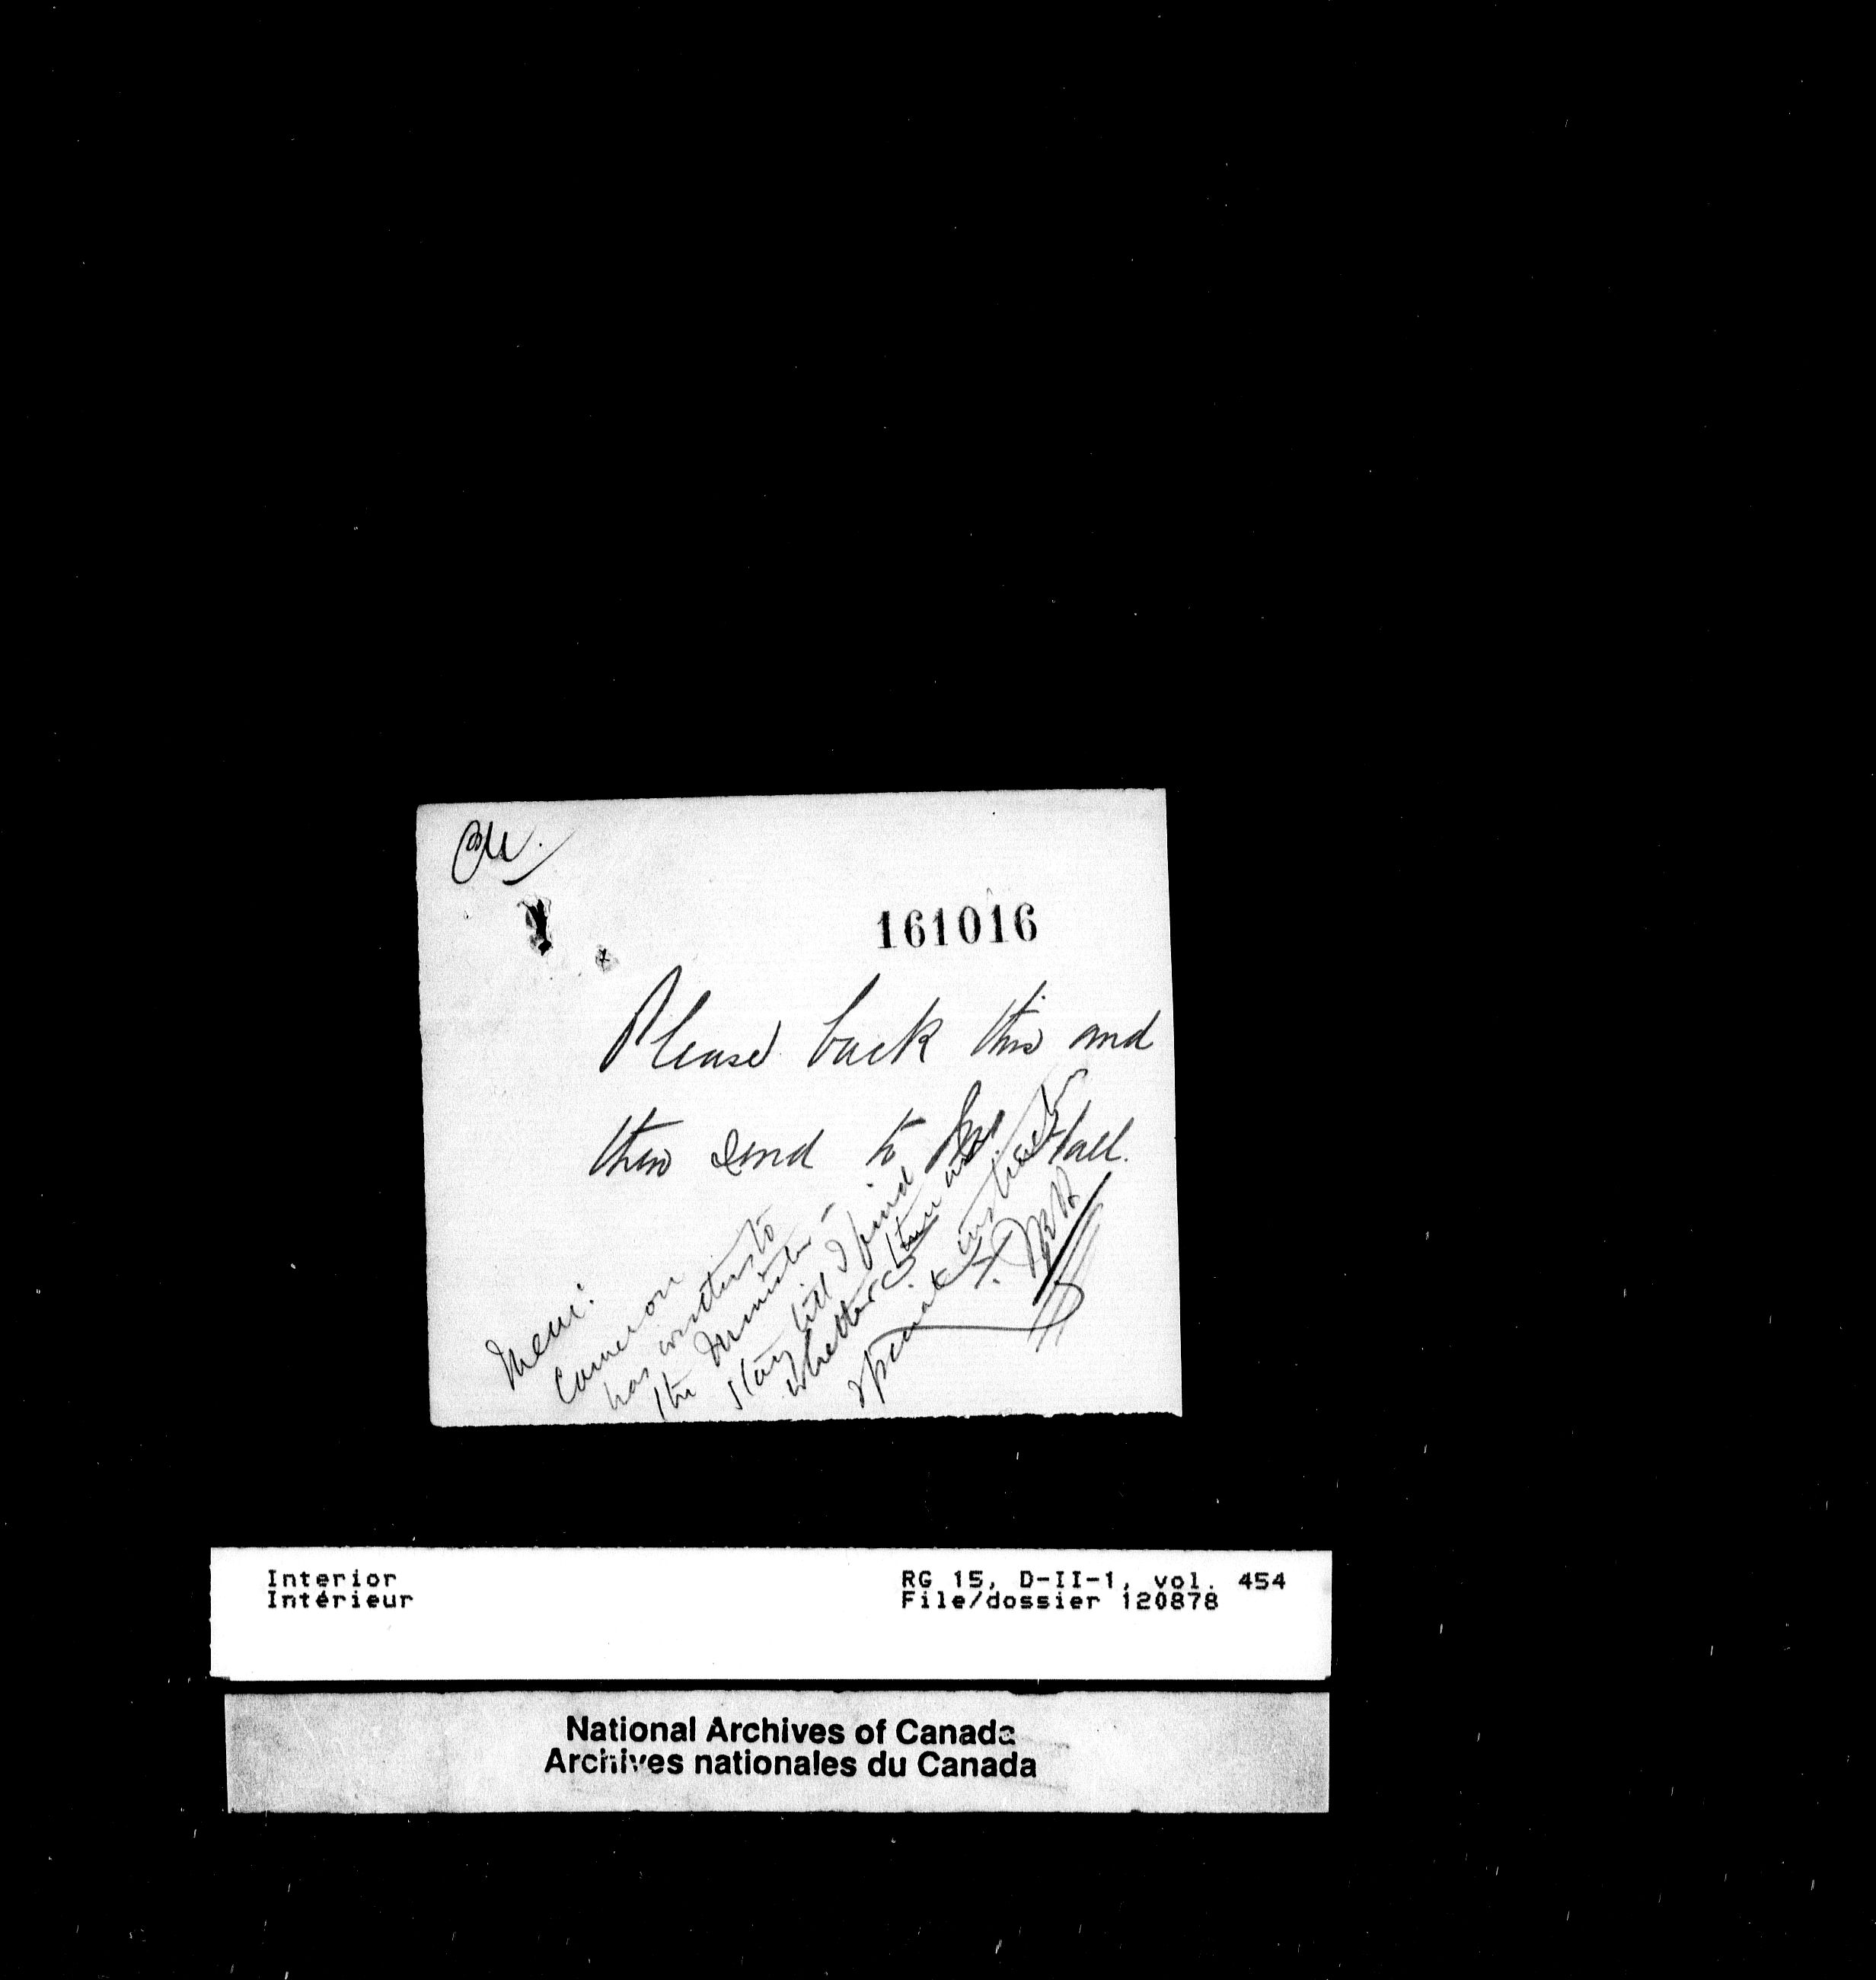 161016
Please back this and
then send to Mr. Hall.
Mem:
Cameron
has written to
the Minister –
stay till I find
whether there are
special instructions
Interior
Intérieur
RG 15, D-II-1, vol. 454
File/dossier 120878
National Archives of Canada
Archives nationales du Canada